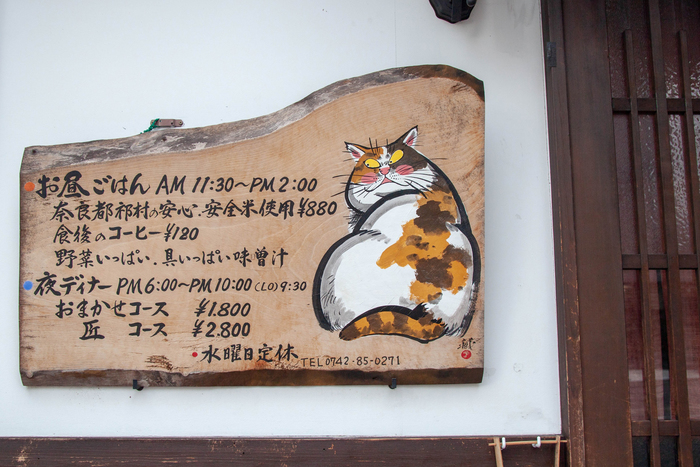 お昼ごはん AM 11:30〜PM 2:00
奈良都祁村の安心、安全米使用¥880
食後のコーヒー¥120
野菜いっぱい、具いっぱい味噌汁
夜ディナー PM 6:00〜PM 10:00 (LO) 9:30
おまかせコース ¥1.800
匠 コース ¥2.800
水曜日定休 TEL 0742-85-0271